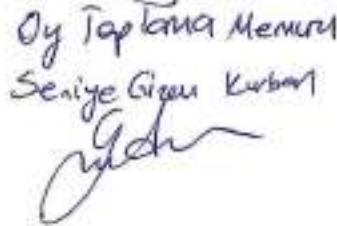 Oy Toplama Memuru
Seniye Gizem Kurban